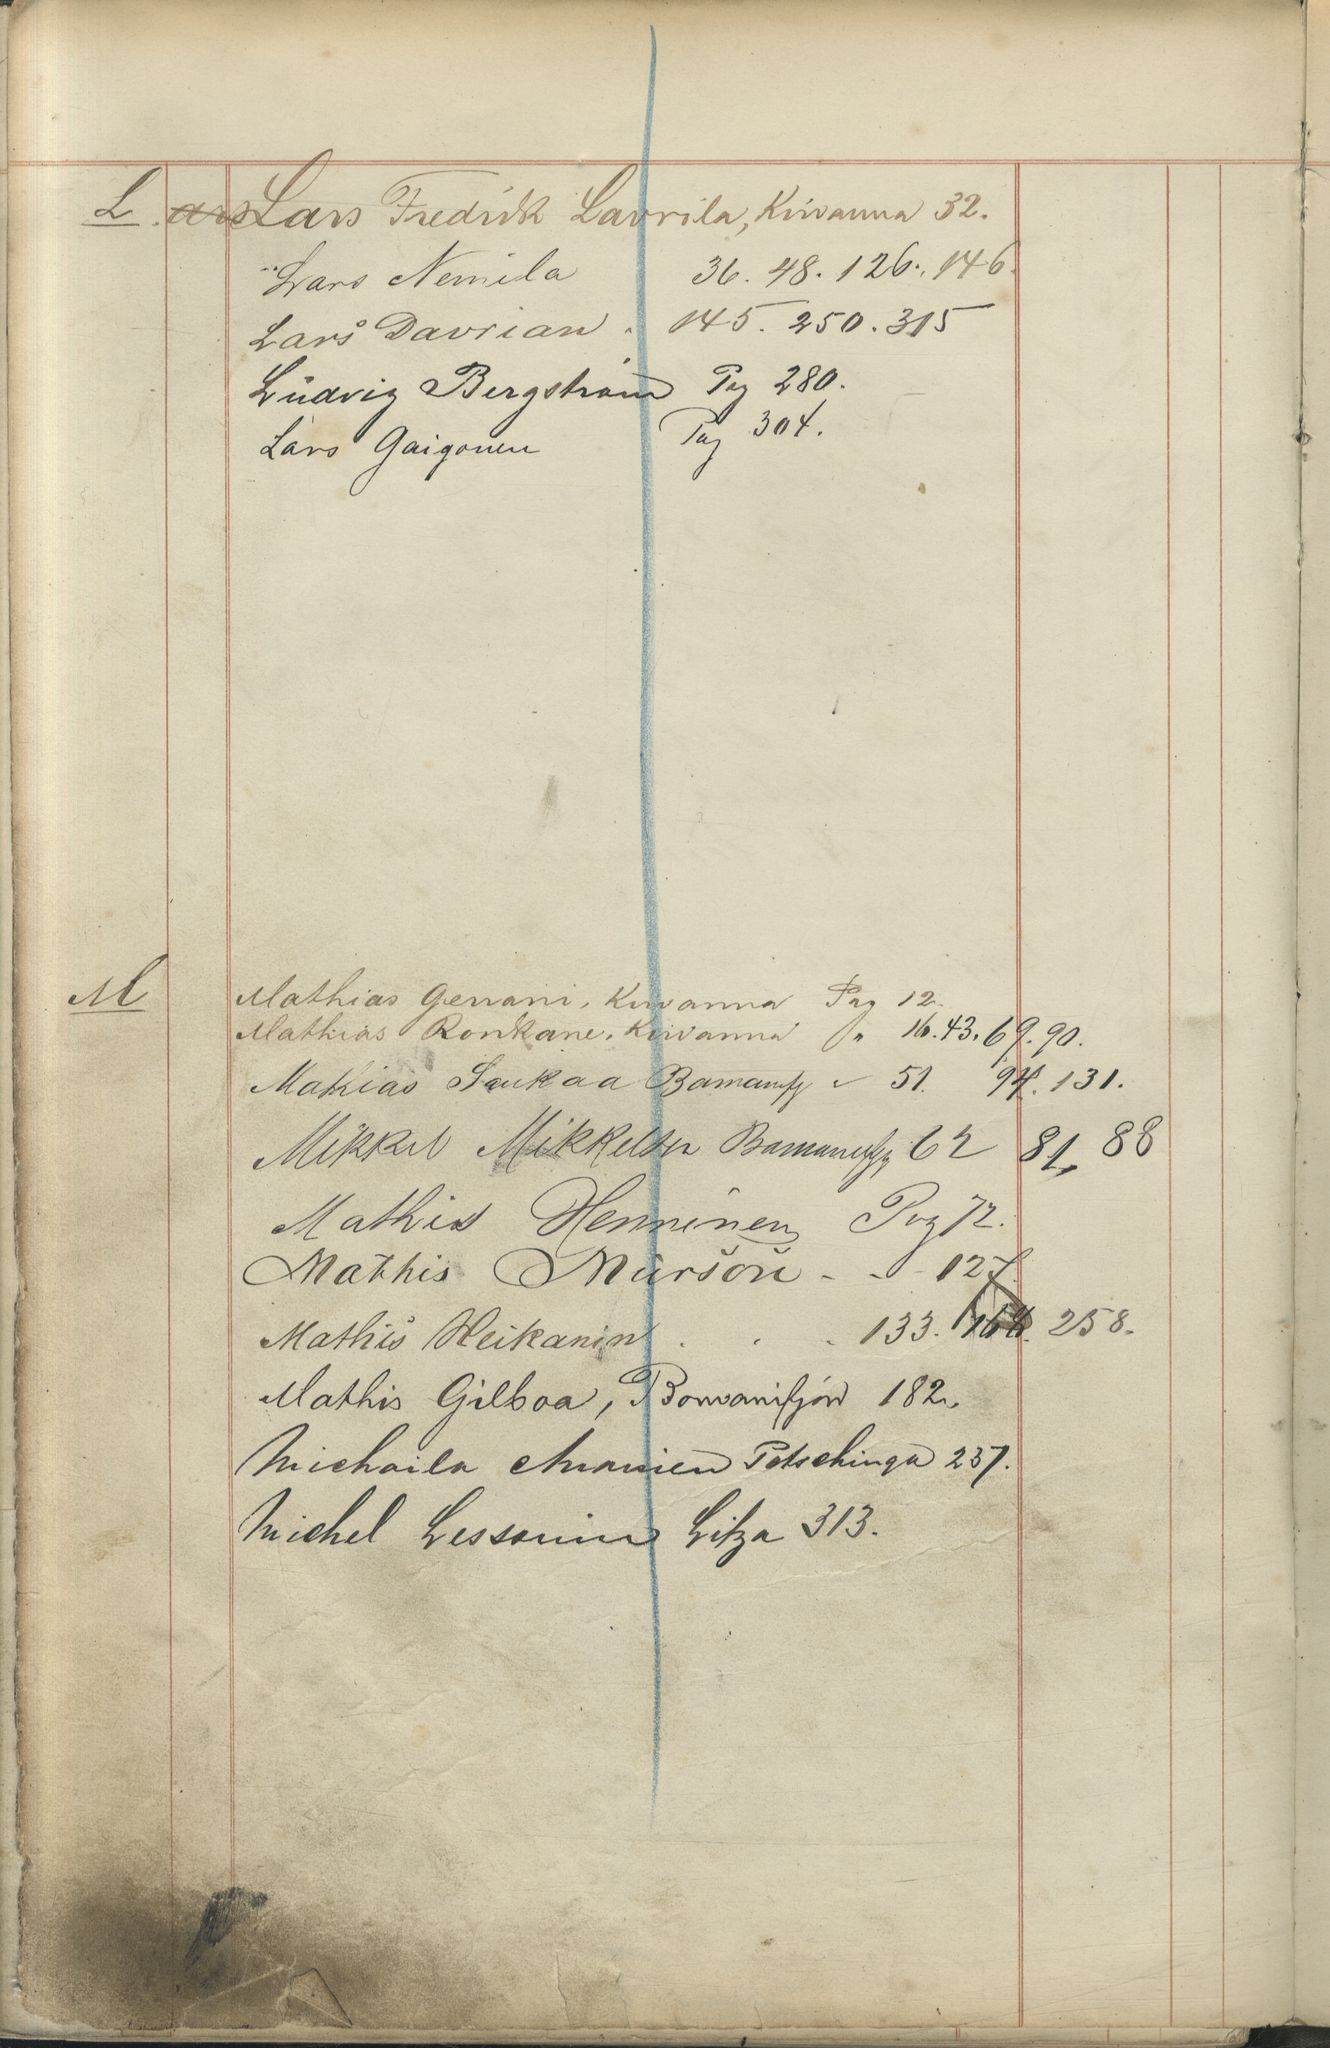 L. ars Lars Fredrik Lavrila, Kirvanna 32.
Lars Nemila 36. 48. 126. 146.
Lars Davrian . 145. 250. 315
Ludvig Bergstrøm Pag 280.
Lars Gaigonen Pag 304.
M Mathias Gerrani, Kirvanna Pag 12.
Mathias Ronkane, Kirvanna " 16. 43. 69. 90.
Mathias Laukaa 51. 94. 131.
Mikkel Mikkelsen 62 81, 88
Mathis Henninen Pag 72.
Mathis Mursou - - - 127.
Mathis Heikanin . . . 133. 258.
Mathis Gilboa, Bomanifjord 182.
Michaila Petschinga 237.
Michel Lessonin Litza 313.